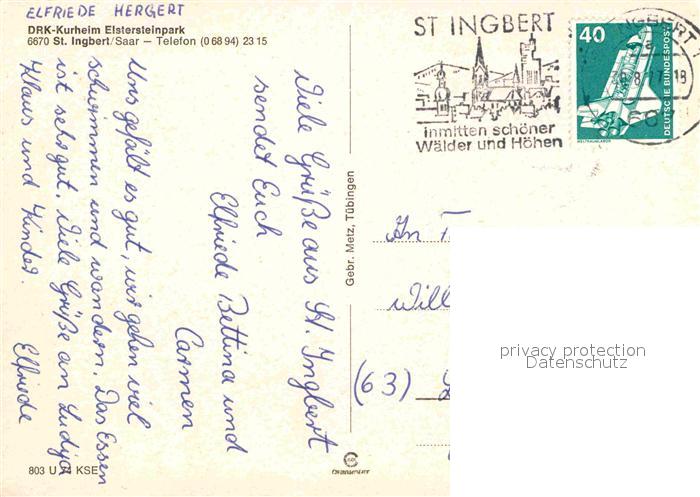 ELFRIEDE HERGERT
DRK-Kurheim Elstersteinpark
6670 St. Ingbert/Saar — Telefon (0 68 94) 23 15
Viele Grüße aus St. Ingbert
sendet Euch
Elfriede Bettina und
Carmen
Uns gefält es gut, wir gehen viel
schwimmen und wandern. Das Essen
ist sehr gut. Viele Grüße an Ludija
Klaus und Kinder.
Elfriede
803 U 74 KSE
Gebr. Metz, Tübingen
ST INGBERT
inmitten schöner
Wälder und Höhen
INGBERT
a
18
40
DEUTSCHE BUNDESPOST
WELTRAUMLABOR
An
Will
(63)
privacy protection
Datenschutz